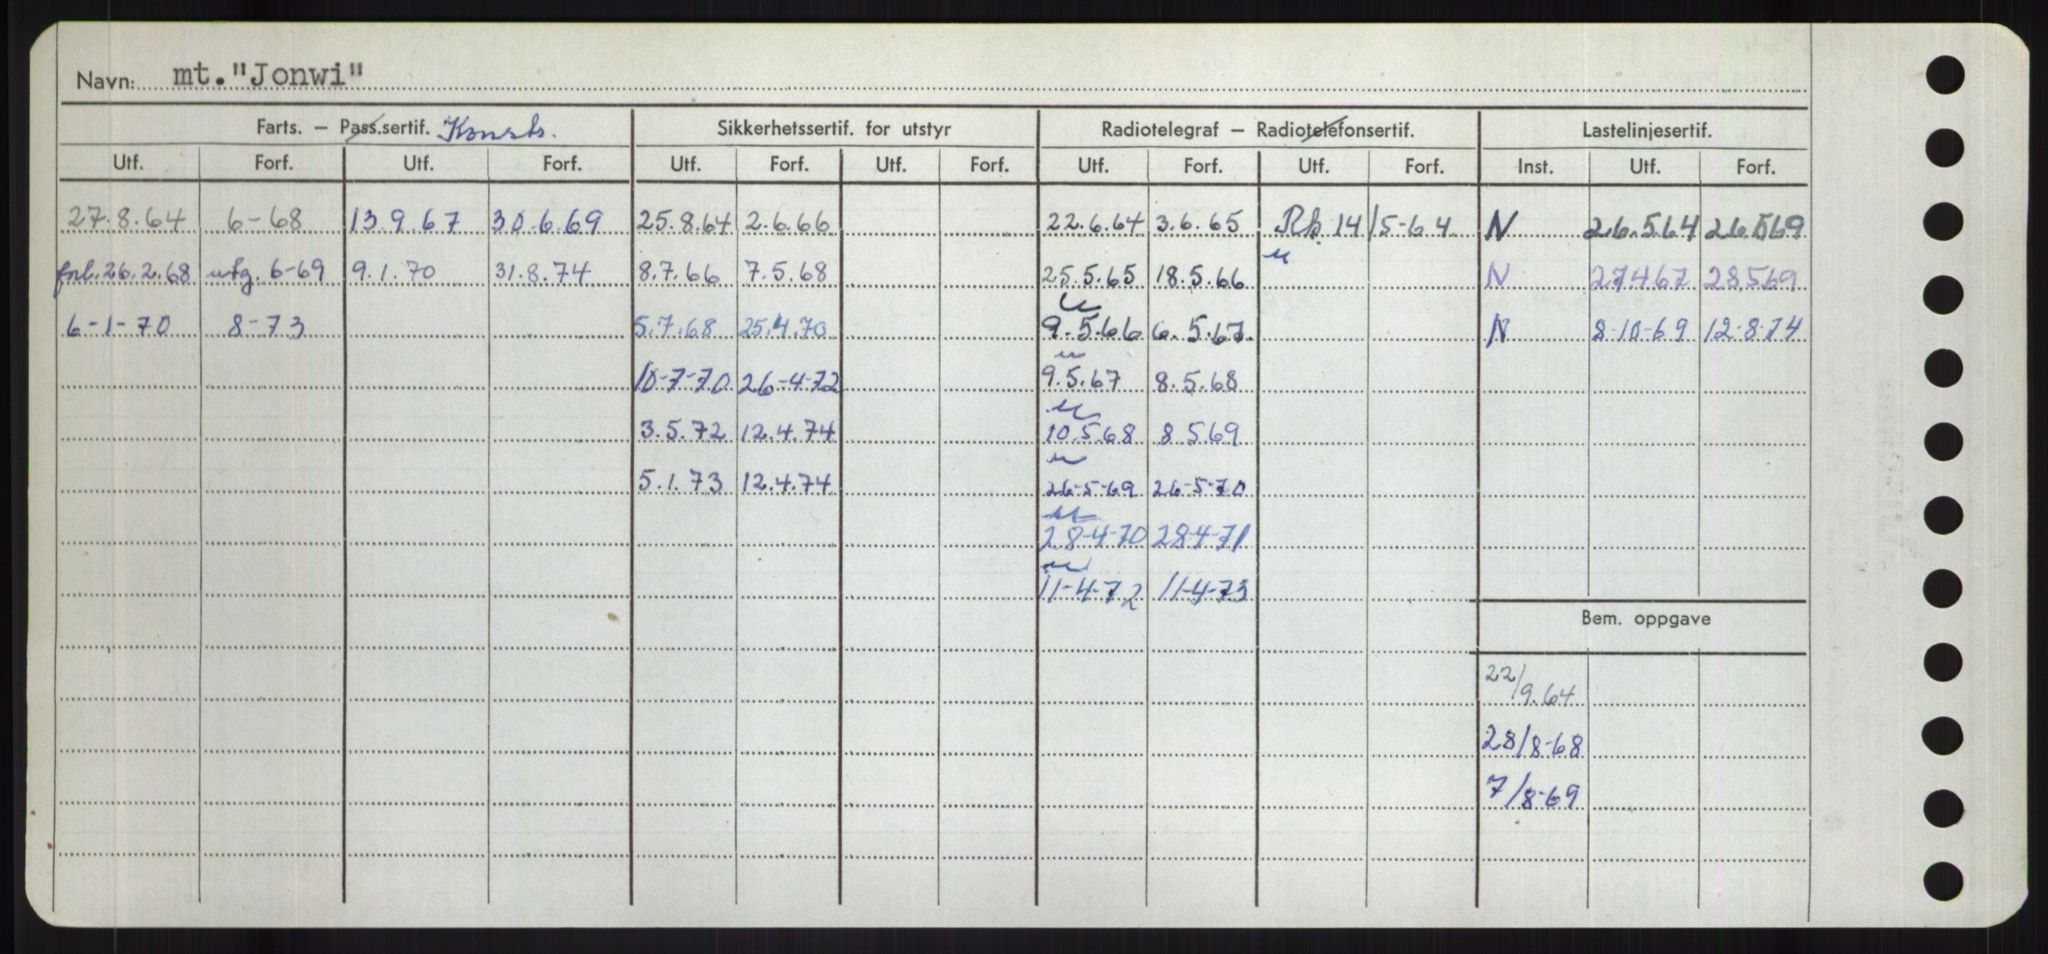 Navn: mt."Jonwi"
Farts. – Pass.sertif. Konstr. Sikkerhetssertif. for utstyr Radiotelegraf – Radiotelefonsertif. Lastelinjesertif.
Utf. Forf. Utf. Forf. Utf. Forf. Utf. Forf. Utf. Forf. Utf. Forf. Inst. Utf. Forf.
27.8.64 6-68 13.9.67 30.6.69 25.8.64 2.6.66 22.6.64 3.6.65 Rk. 14/5-64 N 26.5.64 26.5.69
forl. 26.2.68 utg. 6-69 9.1.70 31.8.74 8.7.66 7.5.68 25.5.65 18.5.66 N 27.4.67 28.5.69
6-1-70 8-73 5.7.68 25.4.70 9.5.66 6.5.67. N 8-10-69 12-8-74
10-7-70 26-4-72 9.5.67 8.5.68
3.5.72 12.4.74 10.5.68 8.5.69
5.1.73 12.4.74 26-5-69 26-5-70
28-4-70 28-4-71
11-4-72 11-4-73
Bem. oppgave
22/9.64
28/8-68
7/8-69